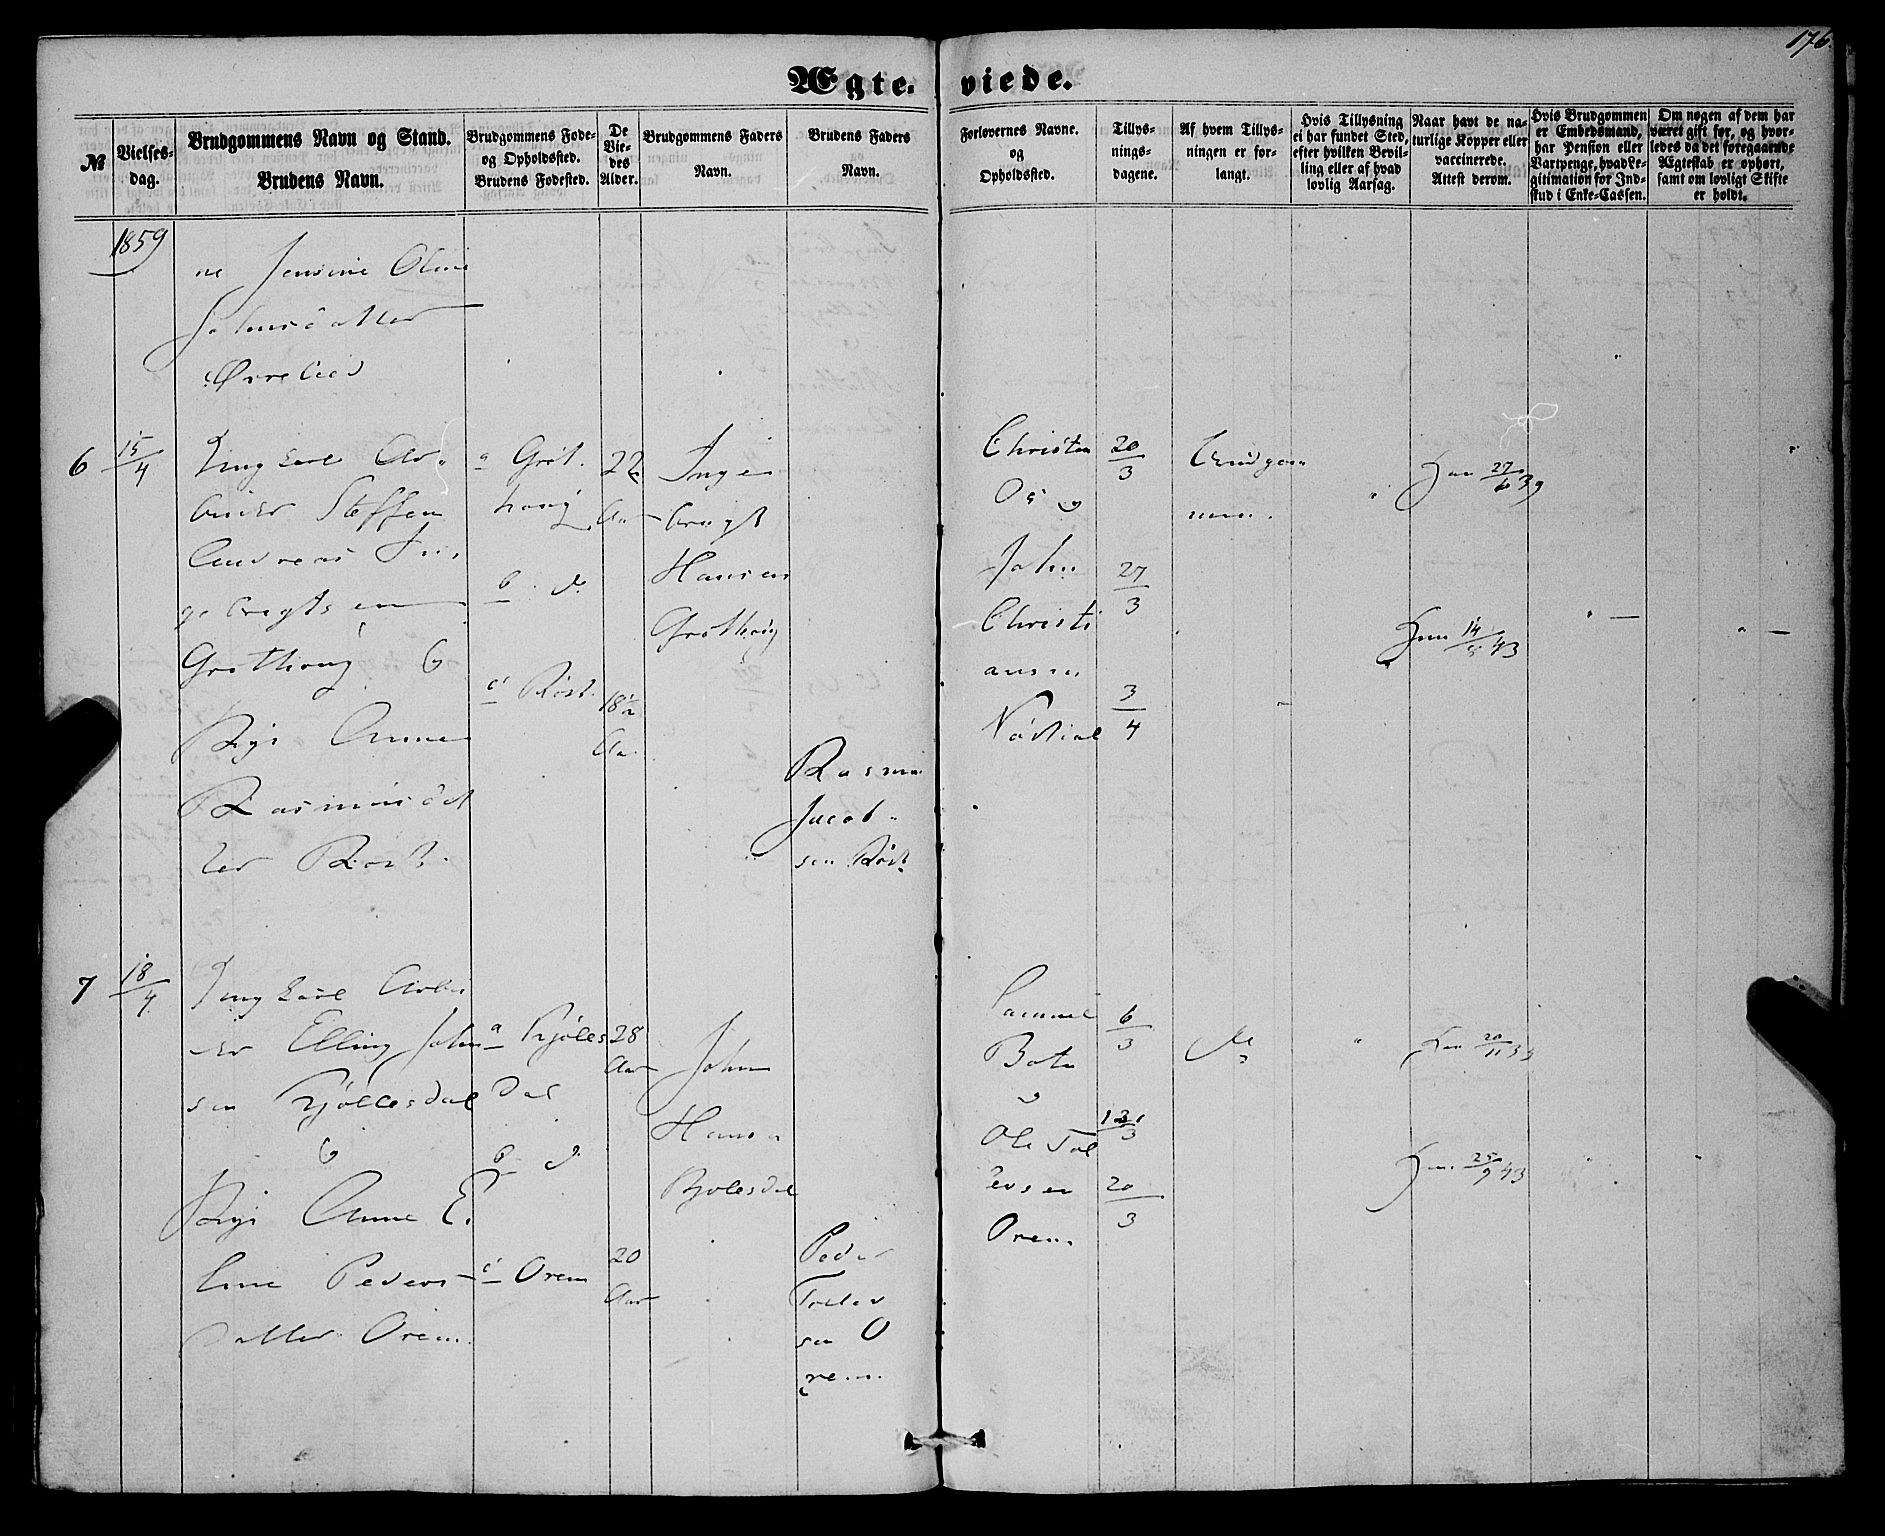 176.
Ægte. viede.
№
Vielses-
dag.
Brudgommens Navn og Stand.
Brudens Navn.
Brudgommens Føde-
og Opholdssted.
Brudens Fødested.
De
Vie-
des
Alder.
Brudgommens Faders
Navn.
Brudens Faders
Navn.
Forlovernes Navne.
og
Opholdssted.
Tillys-
nings-
dagene.
Af hvem Tillys-
ningen er for-
langt.
Hvis Tillysning
ei har fundet Sted,
efter hvilken Bevil-
ling eller af hvad
lovlig Aarsag.
Naar havt de na-
turlige Kopper eller
vaccinerede.
Attest derom.
Hvis Brudgommen
er Embedsmand,
har Pension eller
Vartpenge, hvad Le-
gitimation for Ind-
skud i Enke-Cassen.
Om nogen af dem har
været gift før, og hvor-
ledes da det foregaaende
Ægteskab er ophørt,
samt om lovligt Skifte
er holdt.
1859
ne Jensine Oline
Johnsdatter
6
15/4
Ungkarl Ar-
beider Steffen
Andreas In-
gebregtsen
Grøthoug &
Pige Anne
Rasmusdat
ter Røst.
a Grøt.
houg
b d.
c Røst.
22
Aar
18½
Aar
Inge
bregt
Hansen
Grøthoug
Rasmus
Jacob-
sen Røst
Christen
Os og
John
Christi
ansen
20/3
27/3
3/4
Brudgom
men.
Han 27/6 39
Hun 14/8 43
7
18/4
Ungkarl Arbei
der Elling John
sen Kjøllesdal
&
Pige Anne E.
line Peders
datter Orem.
a Kjøles
dal
b d.
c Orem
28
Aar
20
Aar
John
Hansen
Peder
sen O
rem.
Ole Tol
levsen
Orem
6/3
13/3
20/3
Do
Han 20/11 33
Hun 25/9 43